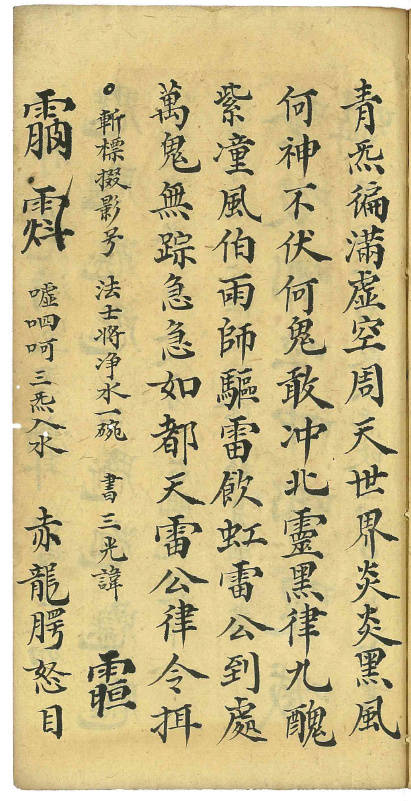 青炁徧滿虛空周天世界炎炎黑風
何神不伏何鬼敢冲北靈黑律九醜
紫潼風伯雨師驅雷飲虹雷公到處
萬鬼無踪急急如都天雷公律令挕
。斬標掇影号 法士将净水一碗 書三光諱
嘘呬呵三炁入水 赤龍腭怒目